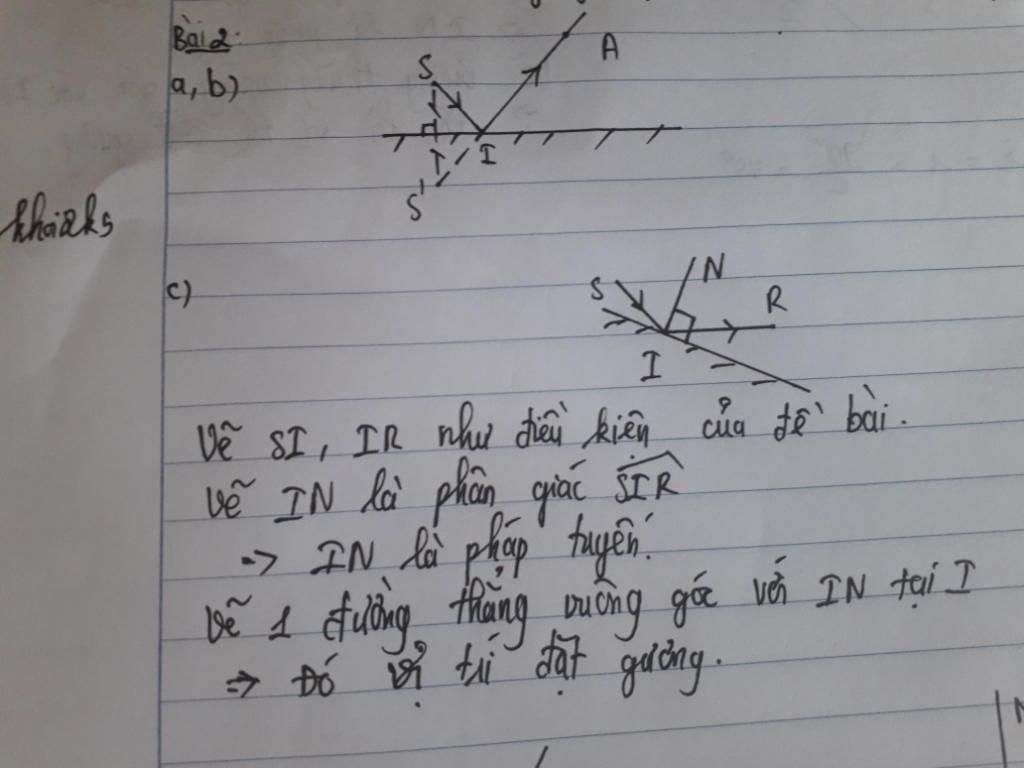 Bài 2:
a, b)
S
A
I
S'
khai2k5
c)
S
N
R
I
Vẽ SI, IR như điều kiện của đề bài.
Vẽ IN là phân giác SIR
=> IN là pháp tuyến.
Vẽ 1 đường thẳng vuông góc với IN tại I
=> Đó vị trí đặt gương.